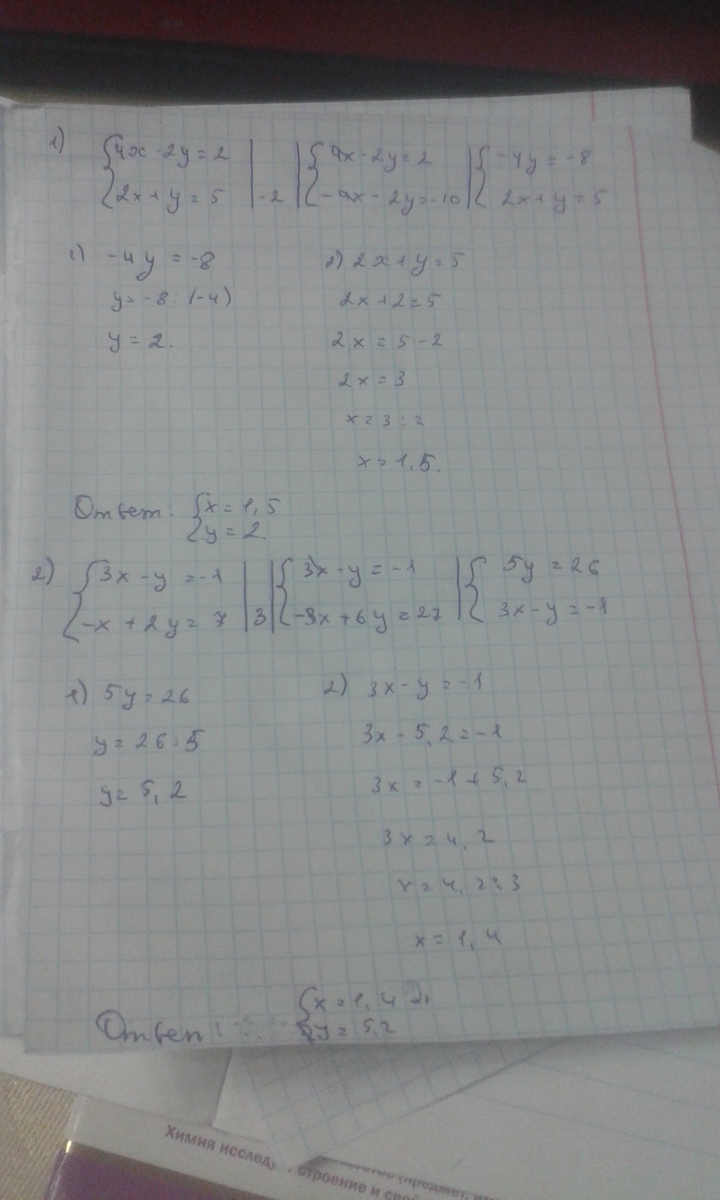 1) {4x - 2y = 2 | {4x - 2y = 2 | {-4y = -8
{2x + y = 5 | -2 | {-4x - 2y = -10 | {2x + y = 5
1) -4y = -8
y = -8 : (-4)
y = 2.
2) 2x + y = 5
2x + 2 = 5
2x = 5 - 2
2x = 3
x = 3 : 2
x = 1,5.
Ответ: {x = 1,5
{y = 2.
2) {3x - y = -1 | {3x - y = -1 | {5y = 26
{-x + 2y = 7 | 3 | {-3x + 6y = 27 | {3x - y = -1
1) 5y = 26
y = 26 : 5
y = 5,2
2) 3x - y = -1
3x - 5,2 = -1
3x = -1 + 5,2
3x = 4,2
x = 4,2 : 3
x = 1,4
Ответ: {x = 1,4
{y = 5,2
Химия исслед
строение и свой